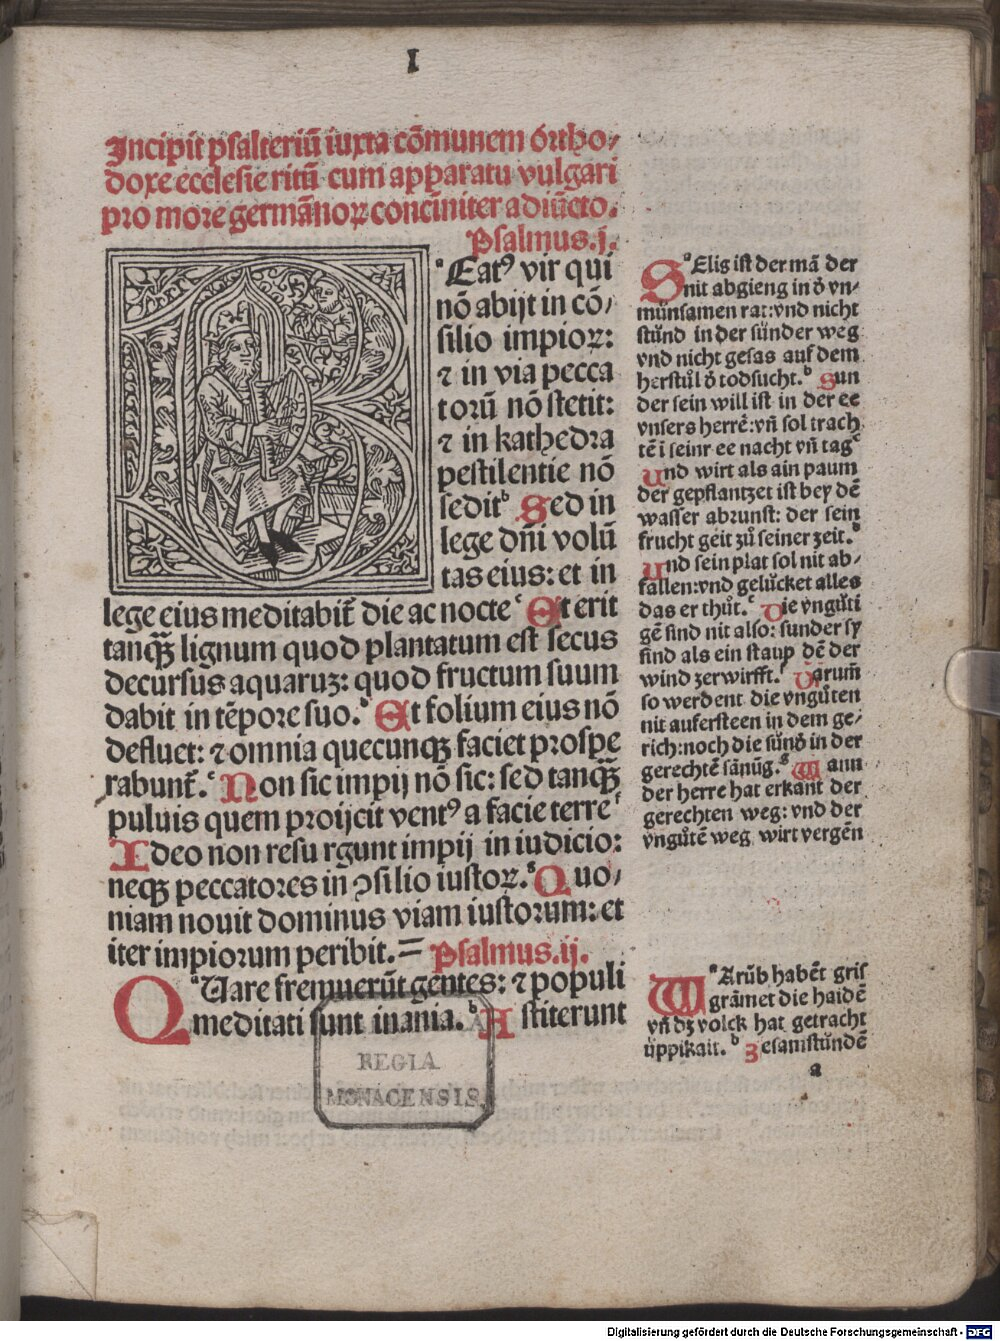 I
Incipit psalteriū iuxta cōmunem ortho⸗
doxe ecclesie ritū cum apparatu vulgari
pro more germānoꝝ conciniter adiūcto.
Psalmus.j.
ᵃEatꝰ vir qui
nō abijt in cō⸗
silio impioꝝ:
⁊ in via pecca
torū nō stetit:
⁊ in kathedra
pestilentie nō
seditᵇ Sed in
lege dn̄i volū
tas eius: et in
lege eius meditabit᷑ die ac nocteᶜ Et erit
tanqꝫ lignum quod plantatum est secus
decursus aquaruꝫ: quod fructum suum
dabit in tēpore suo.ᵈ Et folium eius nō
defluet: ⁊ omnia quecunqꝫ faciet prospe
rabunt᷑.ᵉ Non sic impij nō sic: sed tanqꝫ
puluis quem proijcit ventꝰ a facie terreᶠ
Ideo non resu rgunt impij in iudicio:
neqꝫ peccatores in ꝯsilio iustoꝝ.ᵍ Quo⸗
niam nouit dominus viam iustorum: et
iter impiorum peribit.= Psalmus.ij.
QᵃUare fremuerūt gentes: ⁊ populi
meditati sunt inania.ᵇ Astiterunt
SᵃElis ist der mā der
nit abgieng in d̄ vn⸗
münsamen rat: vnd nicht
stůnd in der sünder weg
vnd nicht gesas auf dem
herstůl d̄ todsucht.ᵇ Sun
der sein will ist in der ee
vnsers herrē: vn̄ sol trach
tē i seinr ee nacht vn̄ tagᶜ
Und wirt als ain paum
der gepflantzet ist bey dē
wasser abrunst: der sein
frucht geit zů seiner zeit.ᵈ
Und sein plat sol nit ab⸗
fallen: vnd gelücket alles
das er thůt.ᵉ Die vngůti
gē sind nit also: sunder sy
sind als ein staup dē der
wind zerwirfft.ᶠ Darum̄
so werdent die vngůten
nit aufersteen in dem ge⸗
rich: noch die sünd̄ in der
gerechtē sānūg.ᵍ Wann
der herre hat erkant der
gerechten weg: vnd der
vngůtē weg wirt vergēn
WᵃArūb habēt gris
grāmet die haidē
vn̄ dꝫ volck hat getracht
üppikait.ᵇ Zesamstůndē
a
REGIA
MONACENSIS.
Digitalisierung gefördert durch die Deutsche Forschungsgemeinschaft - DFG